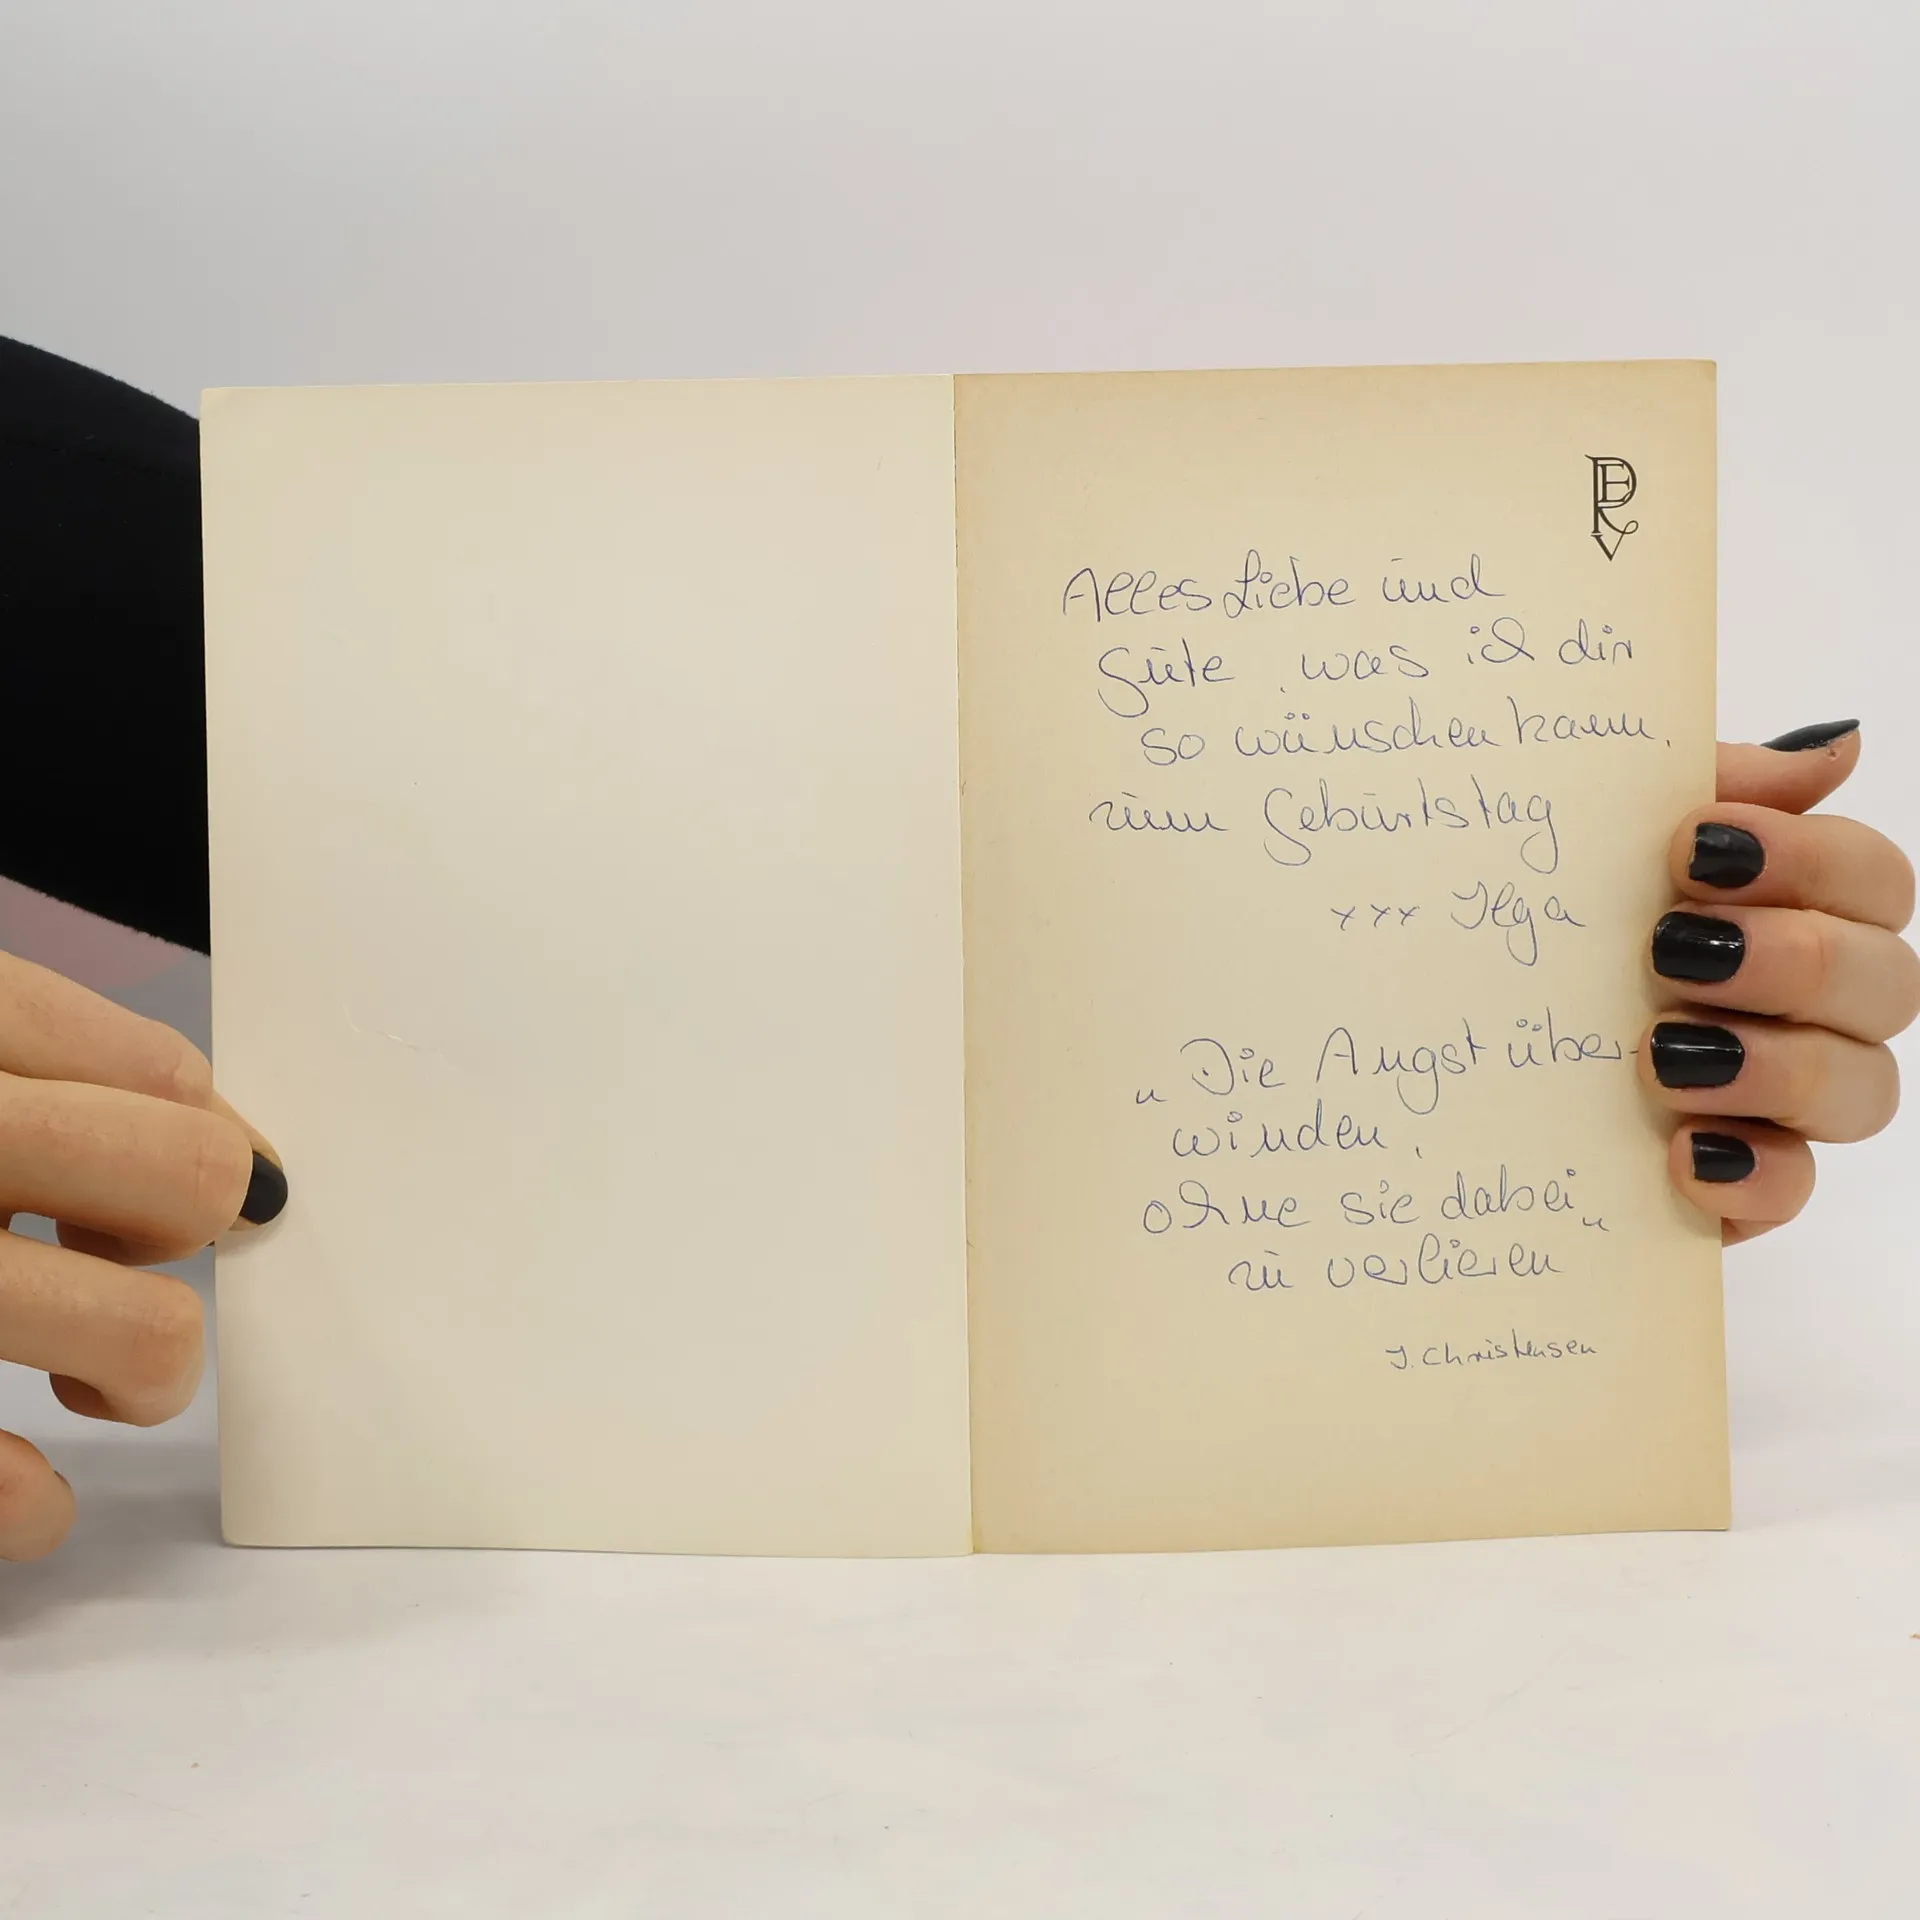 PERV
Alles Liebe und
Gute, was ich dir
so wünschen kann,
zum Geburtstag
xxx Ilga
„Die Angst über-
winden,
ohne sie dabei“
zu verlieren
I. Christensen